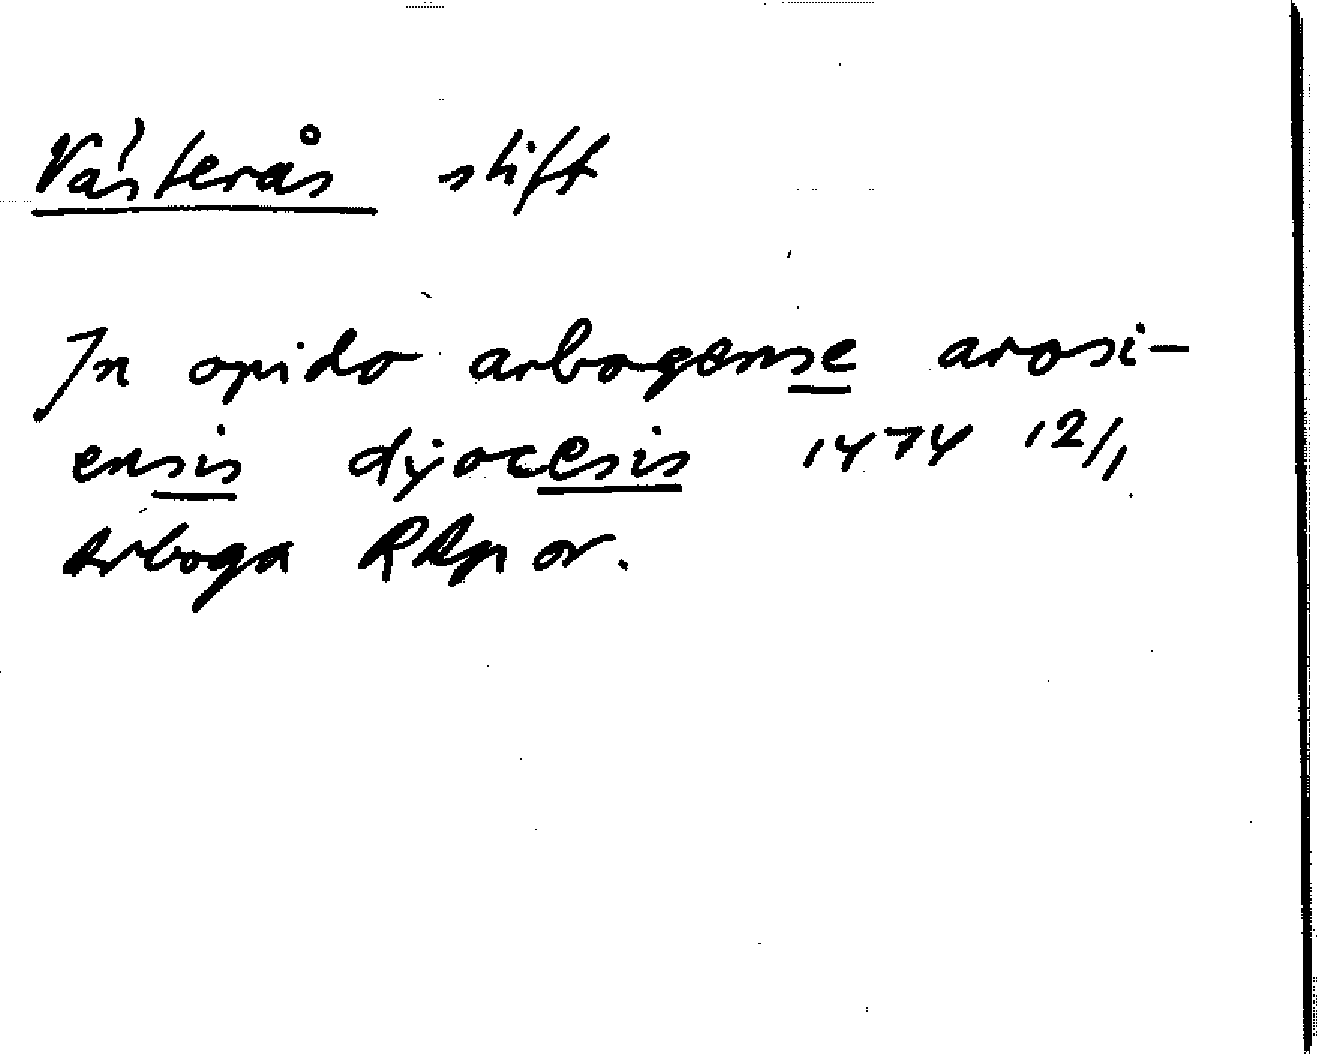 Västerås stift
In opido arbogense arosi-
ensis dyocesis 1474 12/1
Arboga RAp or.